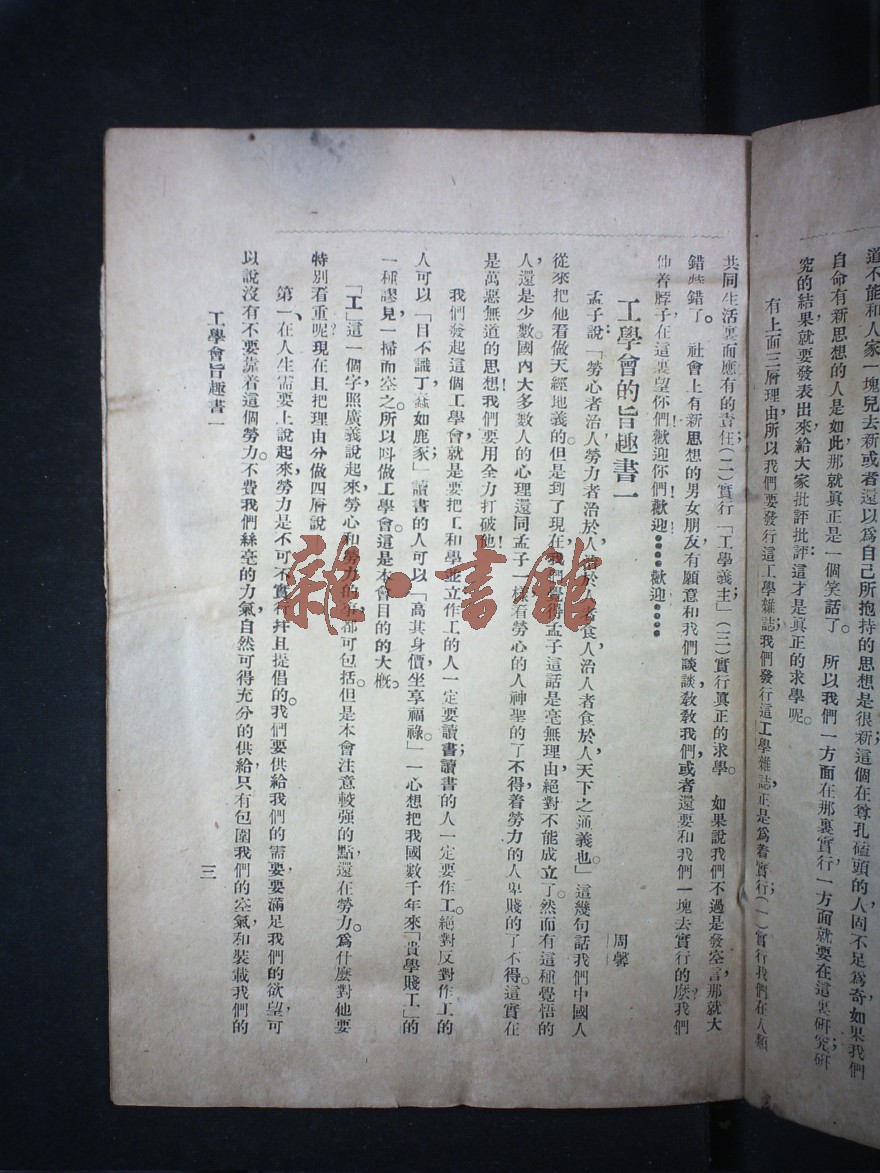 道不能和人家一塊兒去新或者還以爲自己所抱持的思想是很新；這個在尊孔磕頭的人固不足爲奇如果我們
自命有新思想的人是如此，那就眞正是一個笑話了。　所以我們一方面在那裏實行一方面就要在這裏硏究；硏
究的結果就要發表出來給大家批評批評：這才是眞正的求學呢。
有上面三層理由，所以我們要發行這工學雜誌；我們發行這工學雜誌，正是爲着實行；（一）實行我們在人類
共同生活裏面應有的責任；（二）實行「工學義主」；（三）實行眞正的求學。　如果說我們不過是發空言，那就大
錯特錯了。　社會上有新思想的男女朋友，有願意和我們談談，敎敎我們，或者還要和我們一塊去實行的麽？我們
伸着脖子在這裏望你們！歡迎你們！歡迎！……歡迎！……
工學會的旨趣書一
周馨
孟子說：「勞心者治人，勞力者治於人，治於人者食人，治人者食於人，天下之通義也。」這幾句話我們中國人
從來把他看做天經地義的。但是到了現在，我們覺得孟子這話是毫無理由，絕對不能成立了。然而有這種覺悟的
人，還是少數。國內大多數人的心理，還同孟子一樣，看勞心的人神聖的了不得，看勞力的人卑賤的了不得。這實在
是萬惡無道的思想！我們要用全力打破他！
我們發起這個工學會，就是要把工和學並立。作工的人一定要讀書，讀書的人一定要作工。絕對反對作工的
人可以「目不識丁，蠢如鹿豕」讀書的人可以「高其身價，坐享福祿。」一心想把我國數千年來「貴學賤工」的
一種謬見，一掃而空之。所以呌做工學會。這是本會目的的大槪。
「工」這一個字，照廣義說起來，勞心和勞力的事，都可包括。但是本會注意較强的點，還在勞力。爲什麽對他要
特別看重呢？現在且把理由分做四層說：
第一、在人生需要上說起來，勞力是不可不實行幷且提倡的。我們要供給我們的需要，要滿足我們的欲望，可
以說沒有不要靠着這個勞力。不費我們絲毫的力氣，自然可得充分的供給，只有包圍我們的空氣和裝載我們的
工學會旨趣書一
三
雜·書館